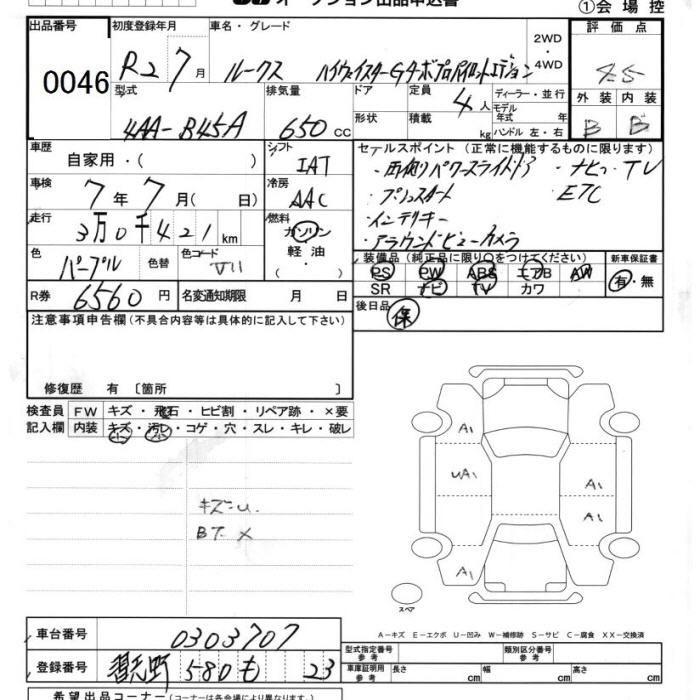 オークション出品申込書
①会場控
出品番号 0046
初度登録年月 R2 7月
車名・グレード ルークス ハイウェイスターGターボプロパイロットエディション
2WD・4WD
評価点 4.5
外装 B 内装 B
型式 4AA-B45A
排気量 650 CC
ドア 形状
定員 4人
積載 kg
ディーラー・並行
モデル年式 年式
ハンドル 左・右
車歴 自家用・( )
シフト IAT
車検 7年7月( 日)
冷房 AAC
走行 3万0千421km
燃料 ガソリン 軽油・
色 パープル 色替 色コード
R券 6560円
名変通知期限 月 日
セールスポイント(正常に機能するものに限ります)
・両側パワースライドドア ・ナビ、TV
・プッシュスタート ・ETC
・インテリキー
・アラウンドビューカメラ
装備品(純正品に限り○をつけてください)
PS PW ABS エアB AW
SR ナビ TV カワ
新車保証書 有・無
後日品 保
注意事項申告欄(不具合内容等は具体的に記入して下さい)
修復歴 有 〔箇所 〕
検査員記入欄
FW キズ・飛石・ヒビ割・リペア跡・×要
内装 キズ・汚レ・コゲ・穴・スレ・キレ・破レ
キズ-U.
BT ×
A1
UA1
A1
A1
A1
スペア
A-キズ E-エクボ U-凹み W-補修跡 S-サビ C-腐食 XX-交換済
車台番号 0303707
登録番号 習志野 580 も 23
型式指定番号 参考
類別区分番号 参考
車庫証明用 参考 長さ cm 幅 cm 高さ cm
希望出品コーナー(コーナーは各会場により異なります)